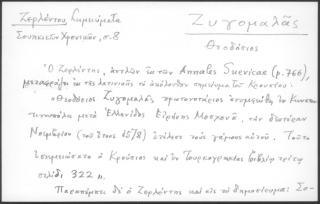 Ζερλέντου Σημειώματα
Σουηκικῶν Χρονικῶν, σ. 8
Ζυγομαλᾶς
Θεοδόσιος
Ὁ Ζερλέντης, ἀντλῶν ἐκ τῶν Annales Suevicae (p. 766),
μεταφράζει ἐκ τῆς λατινικῆς τὸ ἀκόλουθον σημείωμα τοῦ Κρουσίου:
«Θεοδόσιος Ζυγομαλᾶς, πρωτονοτάριος ἐνυμφεύθη ἐν Κωνσταν
τινουπόλει μετὰ Ἑλληνίδος Εἰρήνης τὴν δευτέραν
Νοεμβρίου (τοῦ ἔτους 1578) ἐτέλεσε τοὺς γάμους αὐτοῦ. Τοῦτο
ἐσημειώσατο ὁ Κρούσιος καὶ ἐν Τουρκογραικίᾳ βιβλίῳ τρίτῳ
σελίδι 322».
Παραπέμπει δὲ ὁ Ζερλέντης καὶ εἰς τὸ δημοσίευμα: Σο-